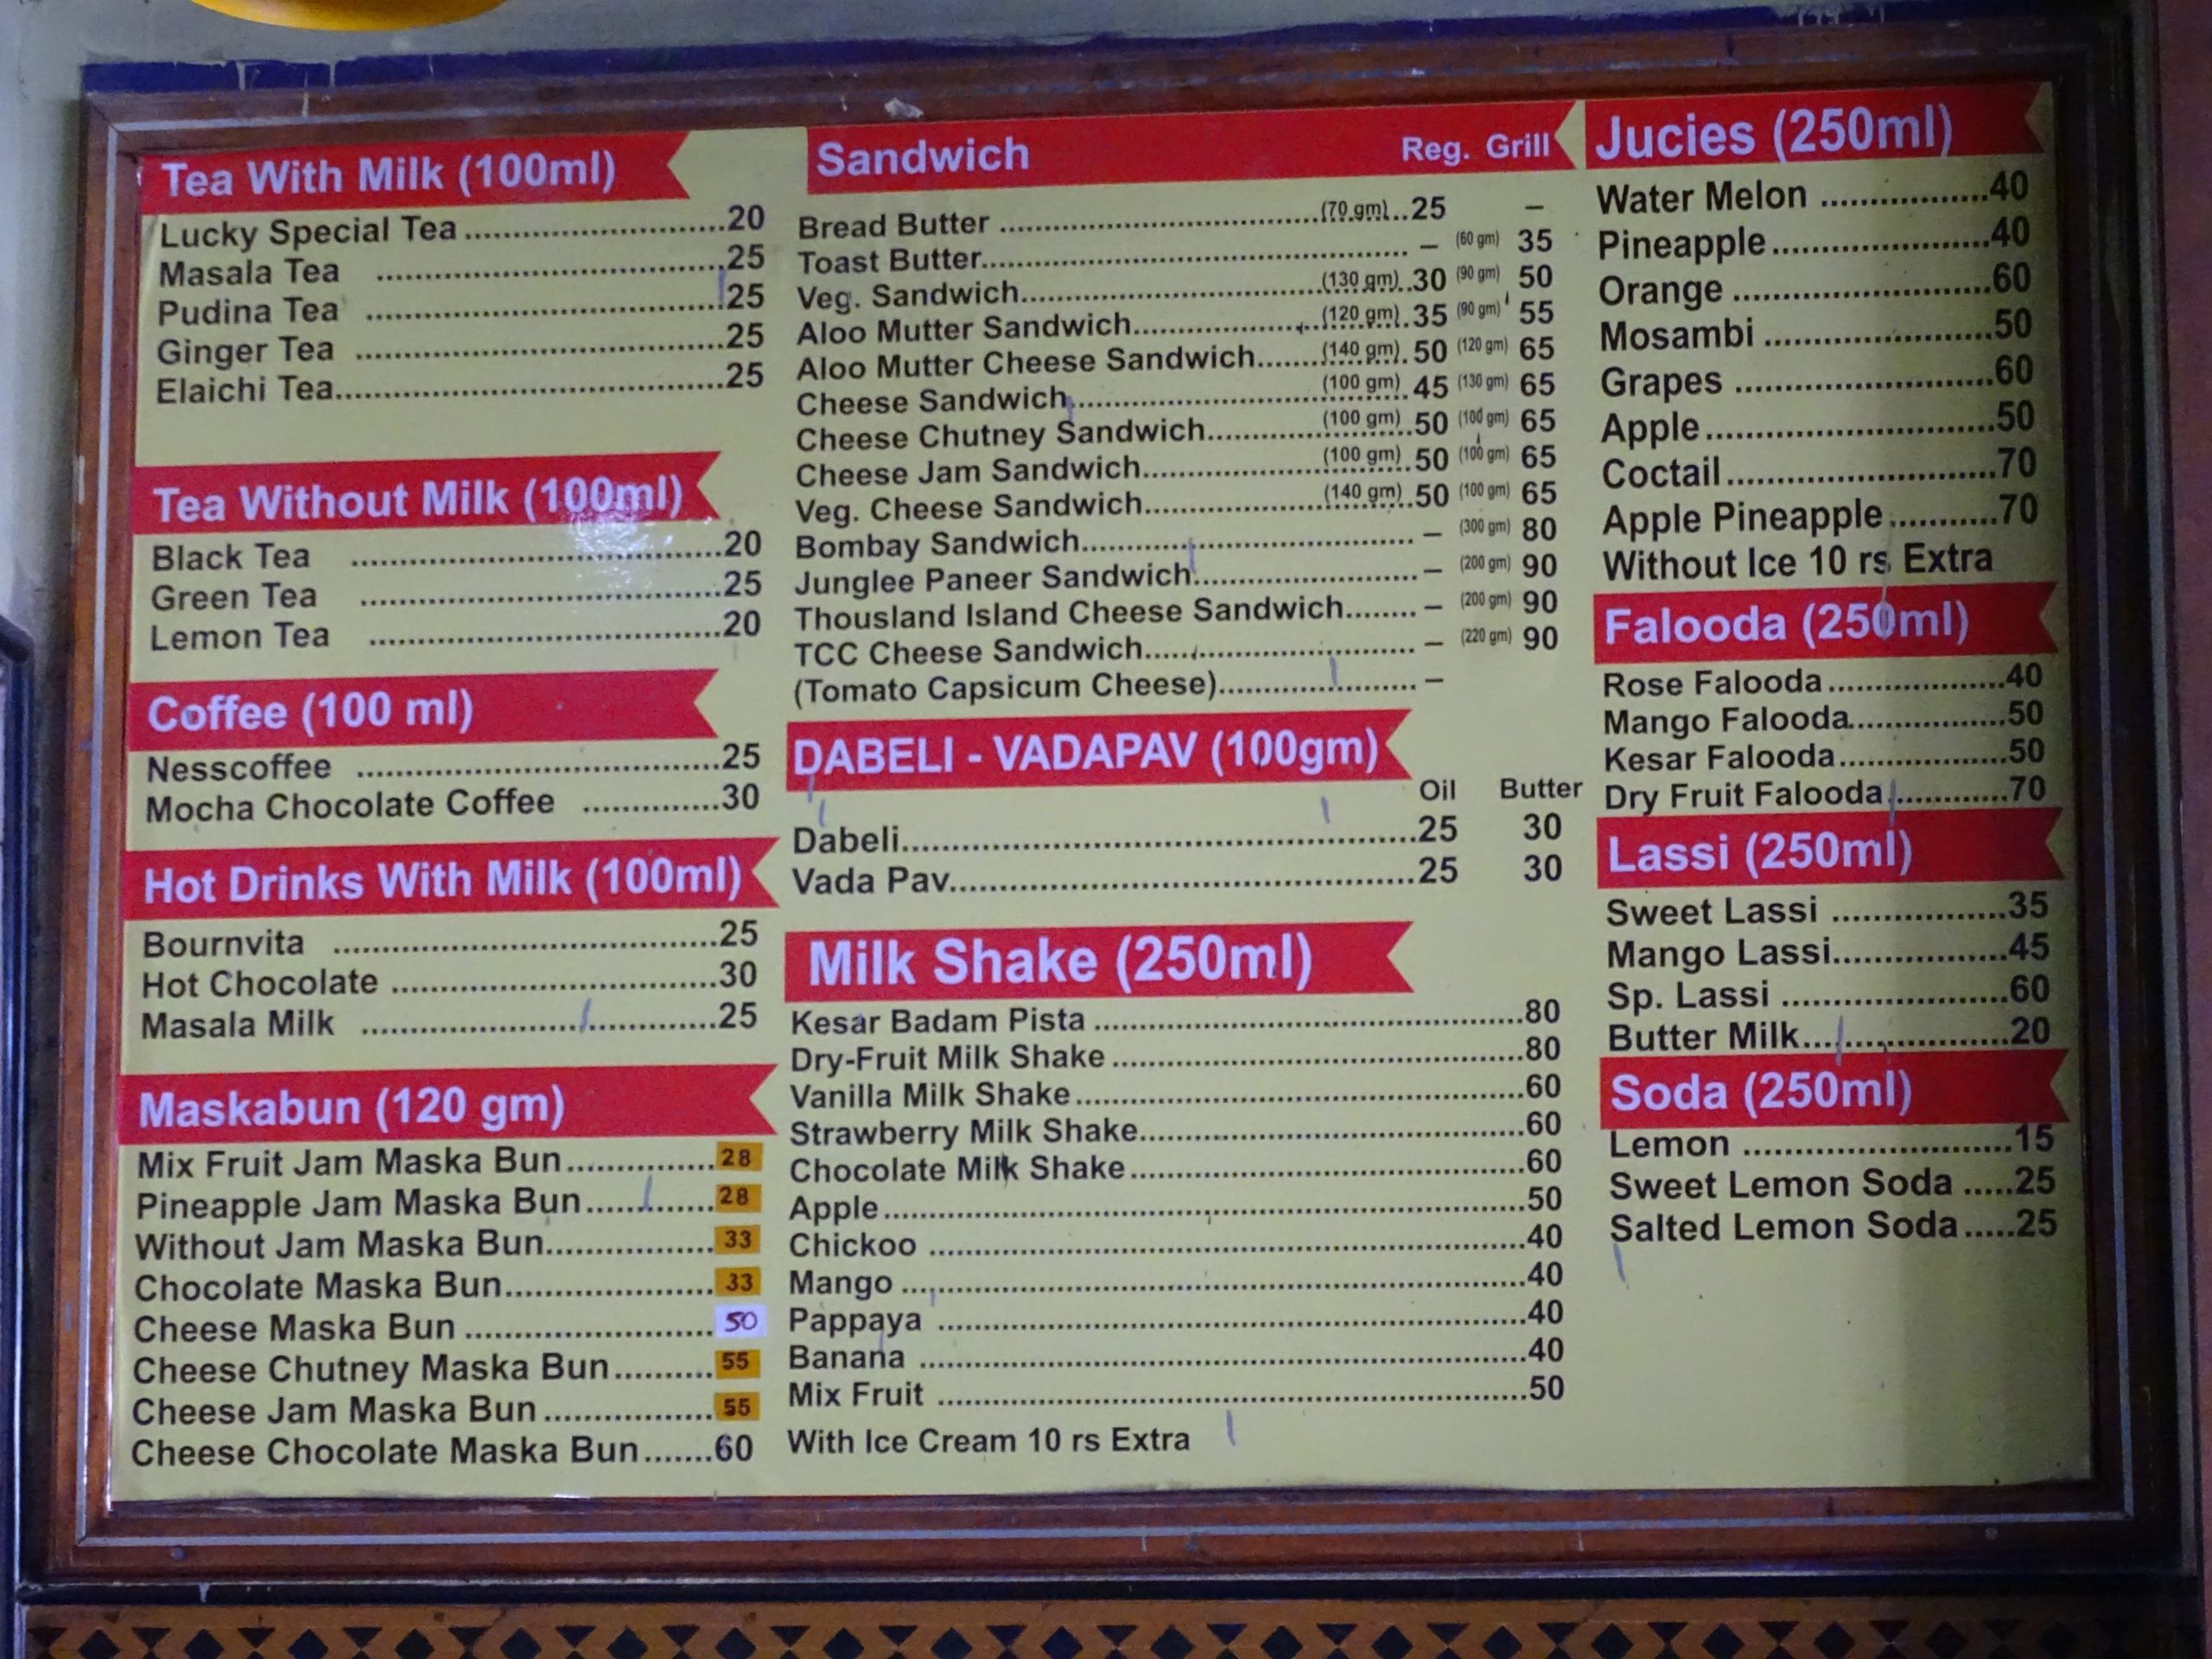 Tea With Milk (100ml)
Lucky Special Tea ............................20
Masala Tea ....................................25
Pudina Tea .....................................25
Ginger Tea ......................................25
Elaichi Tea.........................................25
Tea Without Milk (100ml)
Black Tea .......................................20
Green Tea ......................................25
Lemon Tea .....................................20
Coffee (100 ml)
Nesscoffee ......................................25
Mocha Chocolate Coffee ..............30
Hot Drinks With Milk (100ml)
Bournvita .........................................25
Hot Chocolate ...................................30
Masala Milk ......................................25
Maskabun (120 gm)
Mix Fruit Jam Maska Bun................28
Pineapple Jam Maska Bun..............28
Without Jam Maska Bun..................33
Chocolate Maska Bun.......................33
Cheese Maska Bun ...........................50
Cheese Chutney Maska Bun...........55
Cheese Jam Maska Bun...................55
Cheese Chocolate Maska Bun.......60
Sandwich Reg. Grill
Bread Butter ..................................(70 gm)..25 –
Toast Butter............................................. – (60 gm) 35
Veg. Sandwich................................(130 gm)..30 (90 gm) 50
Aloo Mutter Sandwich....................(120 gm).35 (90 gm) 55
Aloo Mutter Cheese Sandwich.......(140 gm). 50 (120 gm) 65
Cheese Sandwich...........................(100 gm). 45 (130 gm) 65
Cheese Chutney Sandwich............(100 gm)..50 (100 gm) 65
Cheese Jam Sandwich...................(100 gm). 50 (100 gm) 65
Veg. Cheese Sandwich...................(140 gm)..50 (100 gm) 65
Bombay Sandwich..................................... – (300 gm) 80
Junglee Paneer Sandwich......................... – (200 gm) 90
Thousland Island Cheese Sandwich........ – (200 gm) 90
TCC Cheese Sandwich............................. – (220 gm) 90
(Tomato Capsicum Cheese)...................... –
DABELI - VADAPAV (100gm)
Oil Butter
Dabeli.......................................................25 30
Vada Pav..................................................25 30
Milk Shake (250ml)
Kesar Badam Pista ..................................................80
Dry-Fruit Milk Shake ................................................80
Vanilla Milk Shake.....................................................60
Strawberry Milk Shake..............................................60
Chocolate Milk Shake...............................................60
Apple..........................................................................50
Chickoo .....................................................................40
Mango ........................................................................40
Pappaya .....................................................................40
Banana .......................................................................40
Mix Fruit .....................................................................50
With Ice Cream 10 rs Extra
Jucies (250ml)
Water Melon .................40
Pineapple......................40
Orange ..........................60
Mosambi .......................50
Grapes ..........................60
Apple.............................50
Coctail...........................70
Apple Pineapple...........70
Without Ice 10 rs Extra
Falooda (250ml)
Rose Falooda....................40
Mango Falooda.................50
Kesar Falooda...................50
Dry Fruit Falooda..............70
Lassi (250ml)
Sweet Lassi ..................35
Mango Lassi..................45
Sp. Lassi .......................60
Butter Milk.....................20
Soda (250ml)
Lemon ...........................15
Sweet Lemon Soda .....25
Salted Lemon Soda.....25